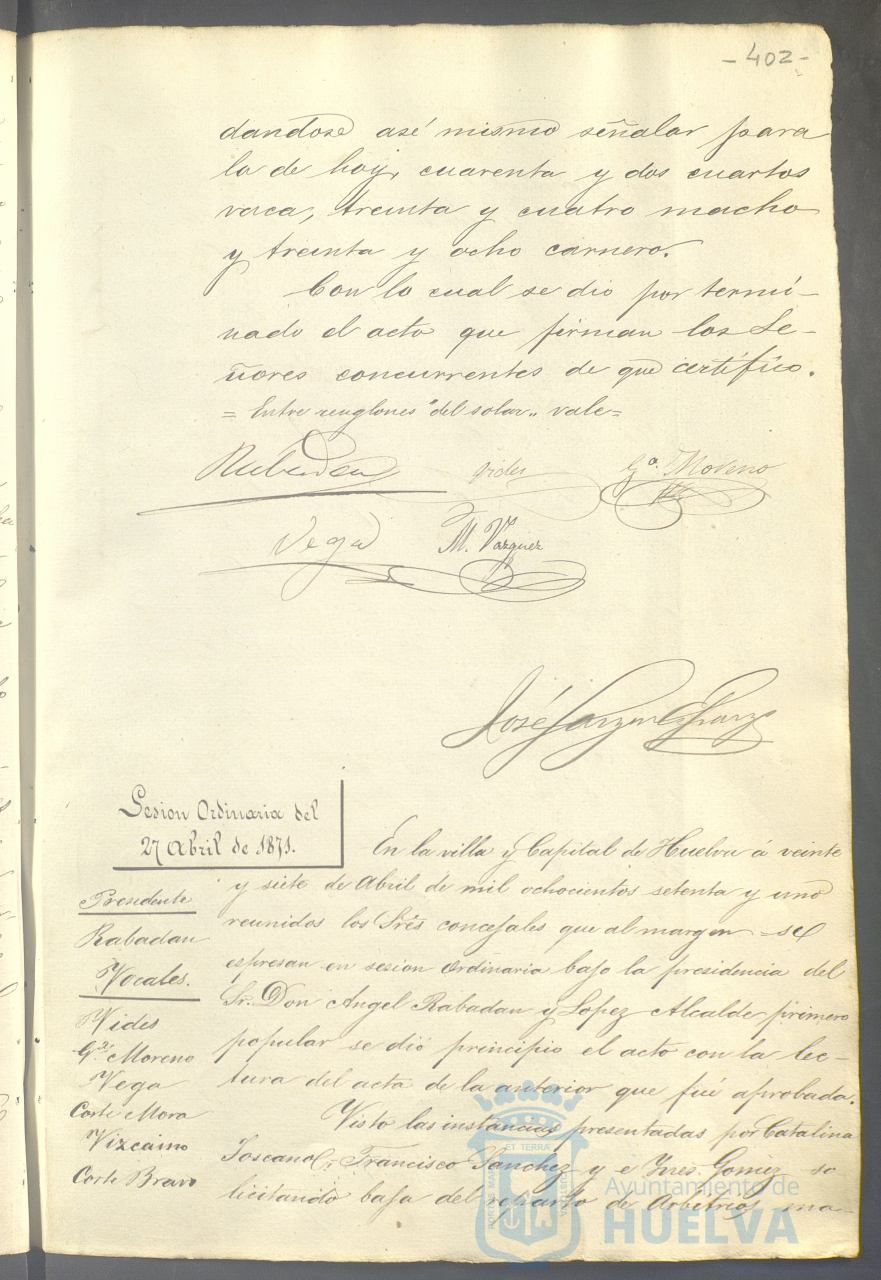 -402-
dandose asé mismo señalar para
la de hoy, cuarenta y dos cuartos
vaca, treinta y cuatro macho
y treinta y ocho carnero.
Con lo cual se dio por termi-
nado el acto que firman los Se-
ñores concurrentes de que certifico.
= Entre renglones "del solar" vale=
Rabadan Vides Gª. Moreno
Vega M. Vazquez
José
Sesion Ordinaria del
27 Abril de 1871.
Presidente
Rabadan
Vocales.
Vides
Gª. Moreno
Vega
Corte Mora
Vizcaino
Corte Bravo
En la villa y Capital de Huelva á veinte
y siete de Abril de mil ochocientos setenta y uno
reunidos los Sres concejales que al margen se
espresan en sesion ordinaria bajo la presidencia del
Sr. Don Angel Rabadan y Lopez Alcalde primero
popular se dió principio el acto con la lec-
tura del acta de la anterior que fué aprobada.
Visto las instancias presentadas por Catalina
Toscano, Francisco Sanchez y e Ynes Gomez so
licitando baja del reparto de Arbitrios ma-
ET TERRA
Ayuntamiento de
HUELVA